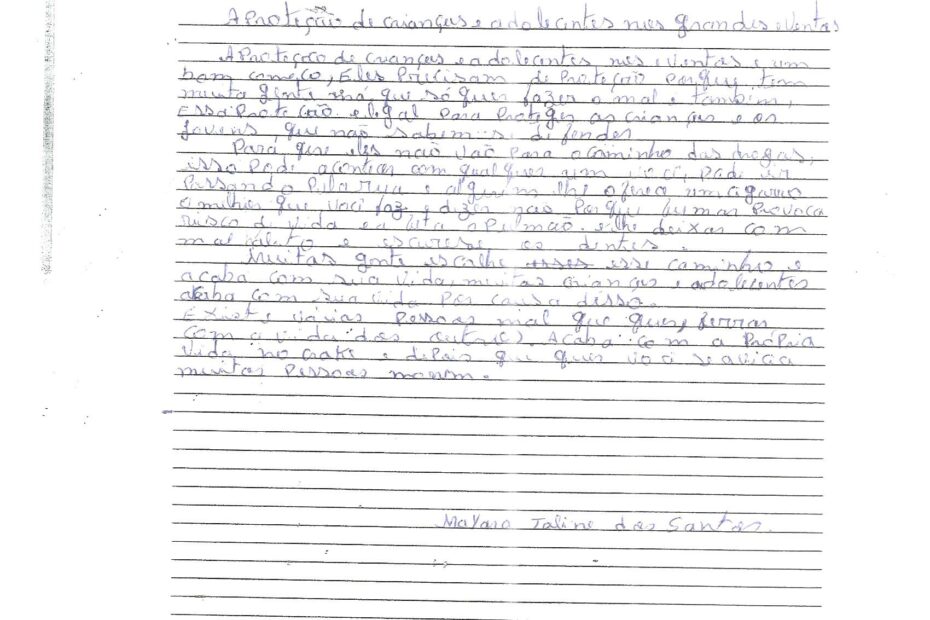 A Proteção de crianças e adolecentes nos grandes eventos
A Proteção de crianças e adolecentes nos eventos e um
bom começo, Eles Precisam de Proteção Porque tem
muita gente má que só quer fazer o mal e também,
Essa Proteção e legal Para Proteger as crianças e os
jovens, que não sabem se defender
Para que eles não vão Para o caminho das drogas,
isso Pode acontecer com qualquer um você, Pode ir
Passando Pela rua e alguém lhe ofereca um cigarro
o milhor que você faz e dizer não Porque fumar Provoca
risco de vida e afeta o Pulmão e lhe deixar com
mal alito e escurese os dentes.
Muitas gente escolhe esse caminho e
acaba com sua vida, muitas crianças e adolecentes
acaba com sua vida Por causa disso.
Existe várias Pessoas mal que quer, ferrar
com a vida dos outros. Acaba com a Própria
vida no crake e depois que quer você se a vicia
muitas Pessoas morrem.
Mayara Taline dos Santos.